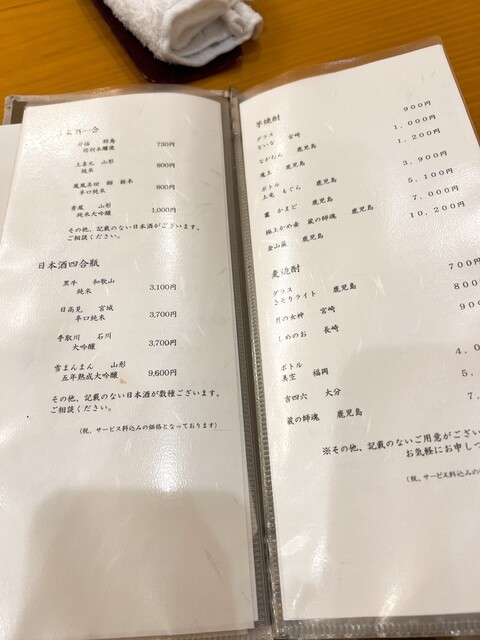 一合
分福 群馬 730円
特別本醸造
上喜元 山形 800円
純米
鳳凰美田 栃木 800円
辛口純米
秀鳳 山形 1,000円
純米大吟醸
その他、記載のない日本酒がございます。
ご相談ください。
日本酒四合瓶
黒牛 和歌山 3,100円
純米
日高見 宮城 3,700円
辛口純米
手取川 石川 3,700円
大吟醸
雪まんまん 山形 9,600円
五年熟成大吟醸
その他、記載のない日本酒が数種ございます。
ご相談ください。
(税、サービス料込みの価格となっております)
芋焼酎
グラス
ないな 宮崎 900円
なかむら 鹿児島 1,000円
魔王 鹿児島 1,200円
ボトル
土竜 もぐら 鹿児島 3,900円
かまど 鹿児島 5,100円
極上かめ壺 蔵の師魂 鹿児島 7,000円
金山蔵 鹿児島 10,200円
麦焼酎
グラス
さそりライト 鹿児島 700円
月の女神 宮崎 800
しめのお 長崎 90
ボトル
美空 福岡 4,0
吉四六 大分 5,
蔵の師魂 鹿児島 7,
※その他、記載のないご用意がござい
お気軽にお申しつ
(税、サービス料込み